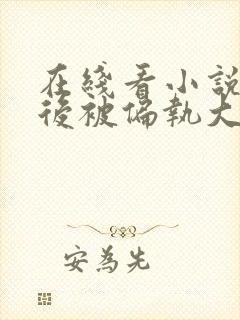 在綫看小説
後被偏執大
安為先